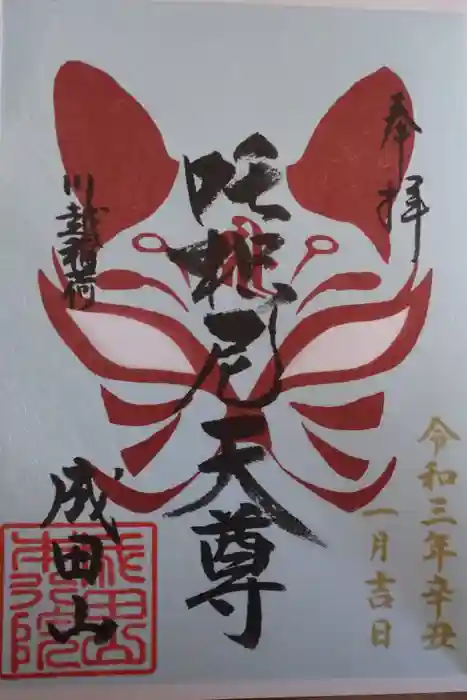 奉拝
令和三年辛丑
一月吉日
吒枳尼天尊
川越稲荷
成田山